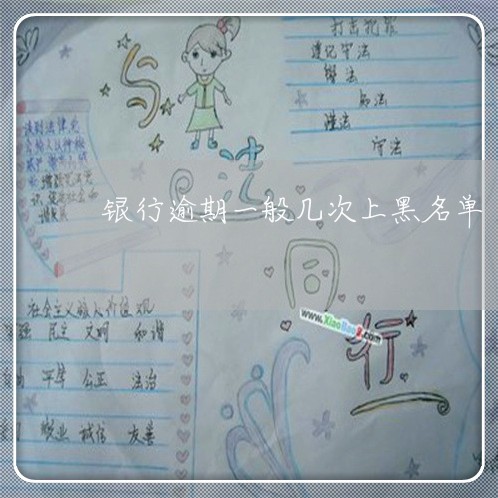 打击犯罪
遵纪守法
学法
知法
懂法
守法
与
法
同
行
银行逾期一般几次上黑名单
www.XiaoBao8.com
社会主义核心价值观
富强 民主 文明 和谐
自由 平等 公正 法治
敬业 诚信 友善